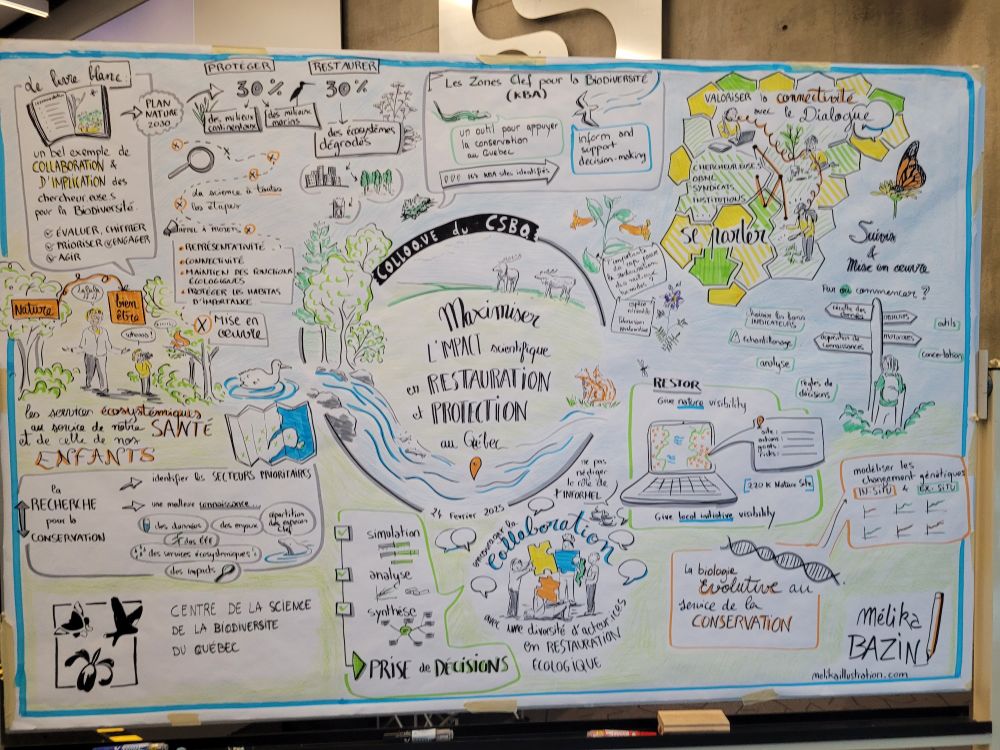 Le livre blanc
PLAN
NATURE
2030
un bel exemple de
COLLABORATION &
D'IMPLICATION des
chercheur·euse·s
pour la Biodiversité.
ÉVALUER, CHIFFRER
PRIORISER ENGAGER
AGIR
PROTÉGER
30%
des milieux
continentaux
des milieux
marins
RESTAURER
30%
des écosystèmes
dégradés
da science à toutes
les étapes
REPRÉSENTATIVITÉ
CONNECTIVITÉ
MAINTIEN DES FONCTIONS
ÉCOLOGIQUES
PROTÉGER LES HABITATS
D'IMPORTANCE
MISE en
OEUVRE
Les Zones Clef pour la BIODIVERSITÉ
(KBA)
un outil pour appuyer
la conservation
au Québec
inform and
support
decision-making
KBA sites identifiés
VALORISER la connectivité
avec le Dialogue
CHERCHEUR·EUSES
OBNL
SYNDICATS
INSTITUTIONS
se parler
Suivis
&
Mise en oeuvre
Par où commencer ?
choisir les bons
INDICATEURS
échantillonnage
analyse
récolte des
données
OBJECTIFS
acquisition de
connaissances
outils
concertation
règles de
décisions
Nature
bien
être
les services écosystémiques
au service de notre SANTÉ
et de celle de nos
ENFANTS
COLLOQUE du CSBQ
Maximiser
L'IMPACT scientifique
en RESTAURATION
et PROTECTION
au Québec
24 Février 2025
RESTOR
Give nature visibility
220 K Nature Site
Give local initiative visibility
ne pas
négliger
le rôle de
l'INFORMEL
la
RECHERCHE
pour la
CONSERVATION
identifier les SECTEURS PRIORITAIRES
une meilleure connaissance...
des données
des enjeux
répartition
des espèces
des EEE
des services écosystémiques
des impacts
simulation
analyse
synthèse
PRISE de DÉCISIONS
collaboration
avec une diversité d'acteur·ices
en RESTAURATION
ÉCOLOGIQUE
modéliser les
changement génétiques
IN-SITU & EX-SITU
la biologie
Évolutive au
service de la
CONSERVATION
CENTRE DE LA SCIENCE
DE LA BIODIVERSITÉ
DU QUÉBEC
Mélika
BAZIN
melikaillustration.com